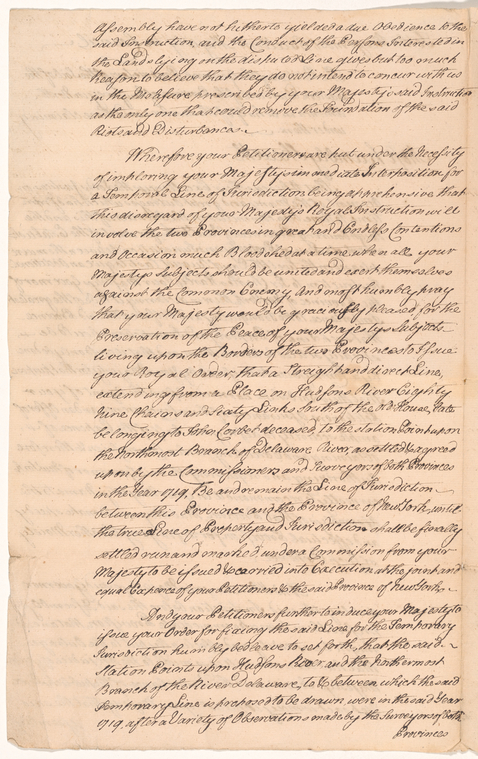 Assembly have not hitherto yielded a due Obedience to the
said Instruction, and the Conduct of the Persons Interested in
the Lands lying on the disputed Line gives but too much
Reason to believe that they do not intend to concur with us
in the Measure prescribed by your Majestys said Instruction
as the only one that could remove the Foundation of the said
Riots and Disturbances.
Wherefore your Petitioners are put under the Necessity
of imploring your Majestys immediate Interposition for
a Temporal Line of Jurisdiction being apprehensive that
this disregard of your Majestys Royal Instruction will
involve the two Provinces in great and Endless Contentions
and Occasion much Bloodshed at a time when all your
Majestys Subjects should be united and exert themselves
against the Common Enemy, And most humbly pray
that your Majesty would be graciously pleased for the
Preservation of the Peace of your Majestys Subjects
living upon the Borders of the two Provinces to Issue
your Royal Order that a Streight and direct Line,
extending from a Place on Hudsons River Eighty
Nine Chains and Sixty Links South of the old House, late
belonging to John Corbet deceased, to the Station Point upon
the Northmost Branch of Delaware River, as settled & agreed
upon by the Commissioners and Surveyors of both Provinces
in the Year 1719, Be and remain the Line of Jurisdiction
between this Province and the Province of New York, until
the true Line of Property and Jurisdiction shall be finally
settled run and marked under a Commission from your
Majesty to be issued & carried into Execution at the joint and
equal Expence of your Petitioners & the said Province of New York.
And your Petitioners further to induce your Majesty to
issue your Order for fixing the said Line for the Temporary
Jurisdiction humbly beg leave to set forth, that the said
Station Points upon Hudsons River and the Northermost
Branch of the River Delaware, to & between which the said
Temporary Line is proposed to be drawn, were in the said Year
1719, after a Variety of Observations made by the Surveyors of both
Provinces